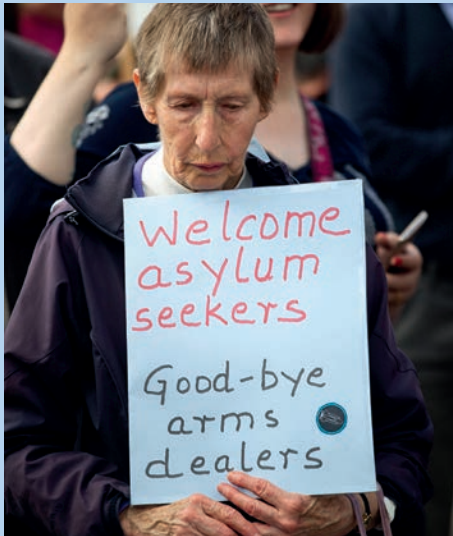 Welcome
asylum
seekers
Good-bye
arms
dealers